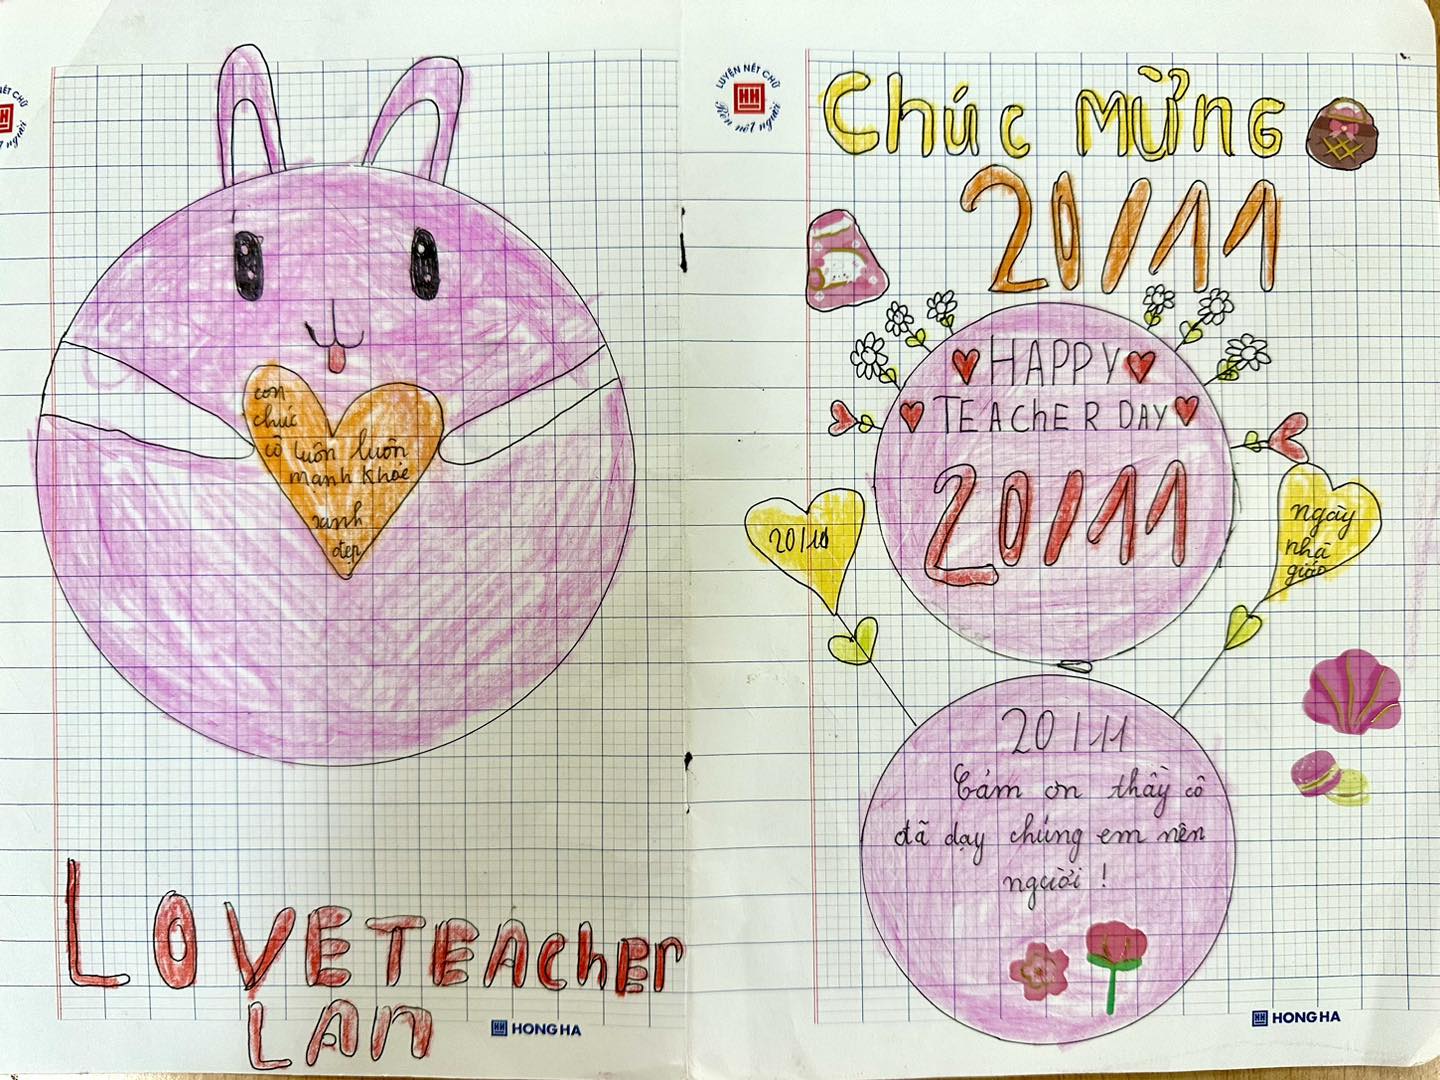 NÉT CHỮ
HH
nết người
con
chúc
cô luôn luôn
mạnh khỏe
xanh
đẹp
LOVE TEACHER
LAN
HONG HA
LUYỆN NÉT CHỮ
HH
Rèn nết người
CHÚC MỪNG
20/11
HAPPY
TEACHER DAY
20/11
20/11
ngày
nhà
giáo
20/11
Cảm ơn thầy cô
đã dạy chúng em nên
người !
HONG HA